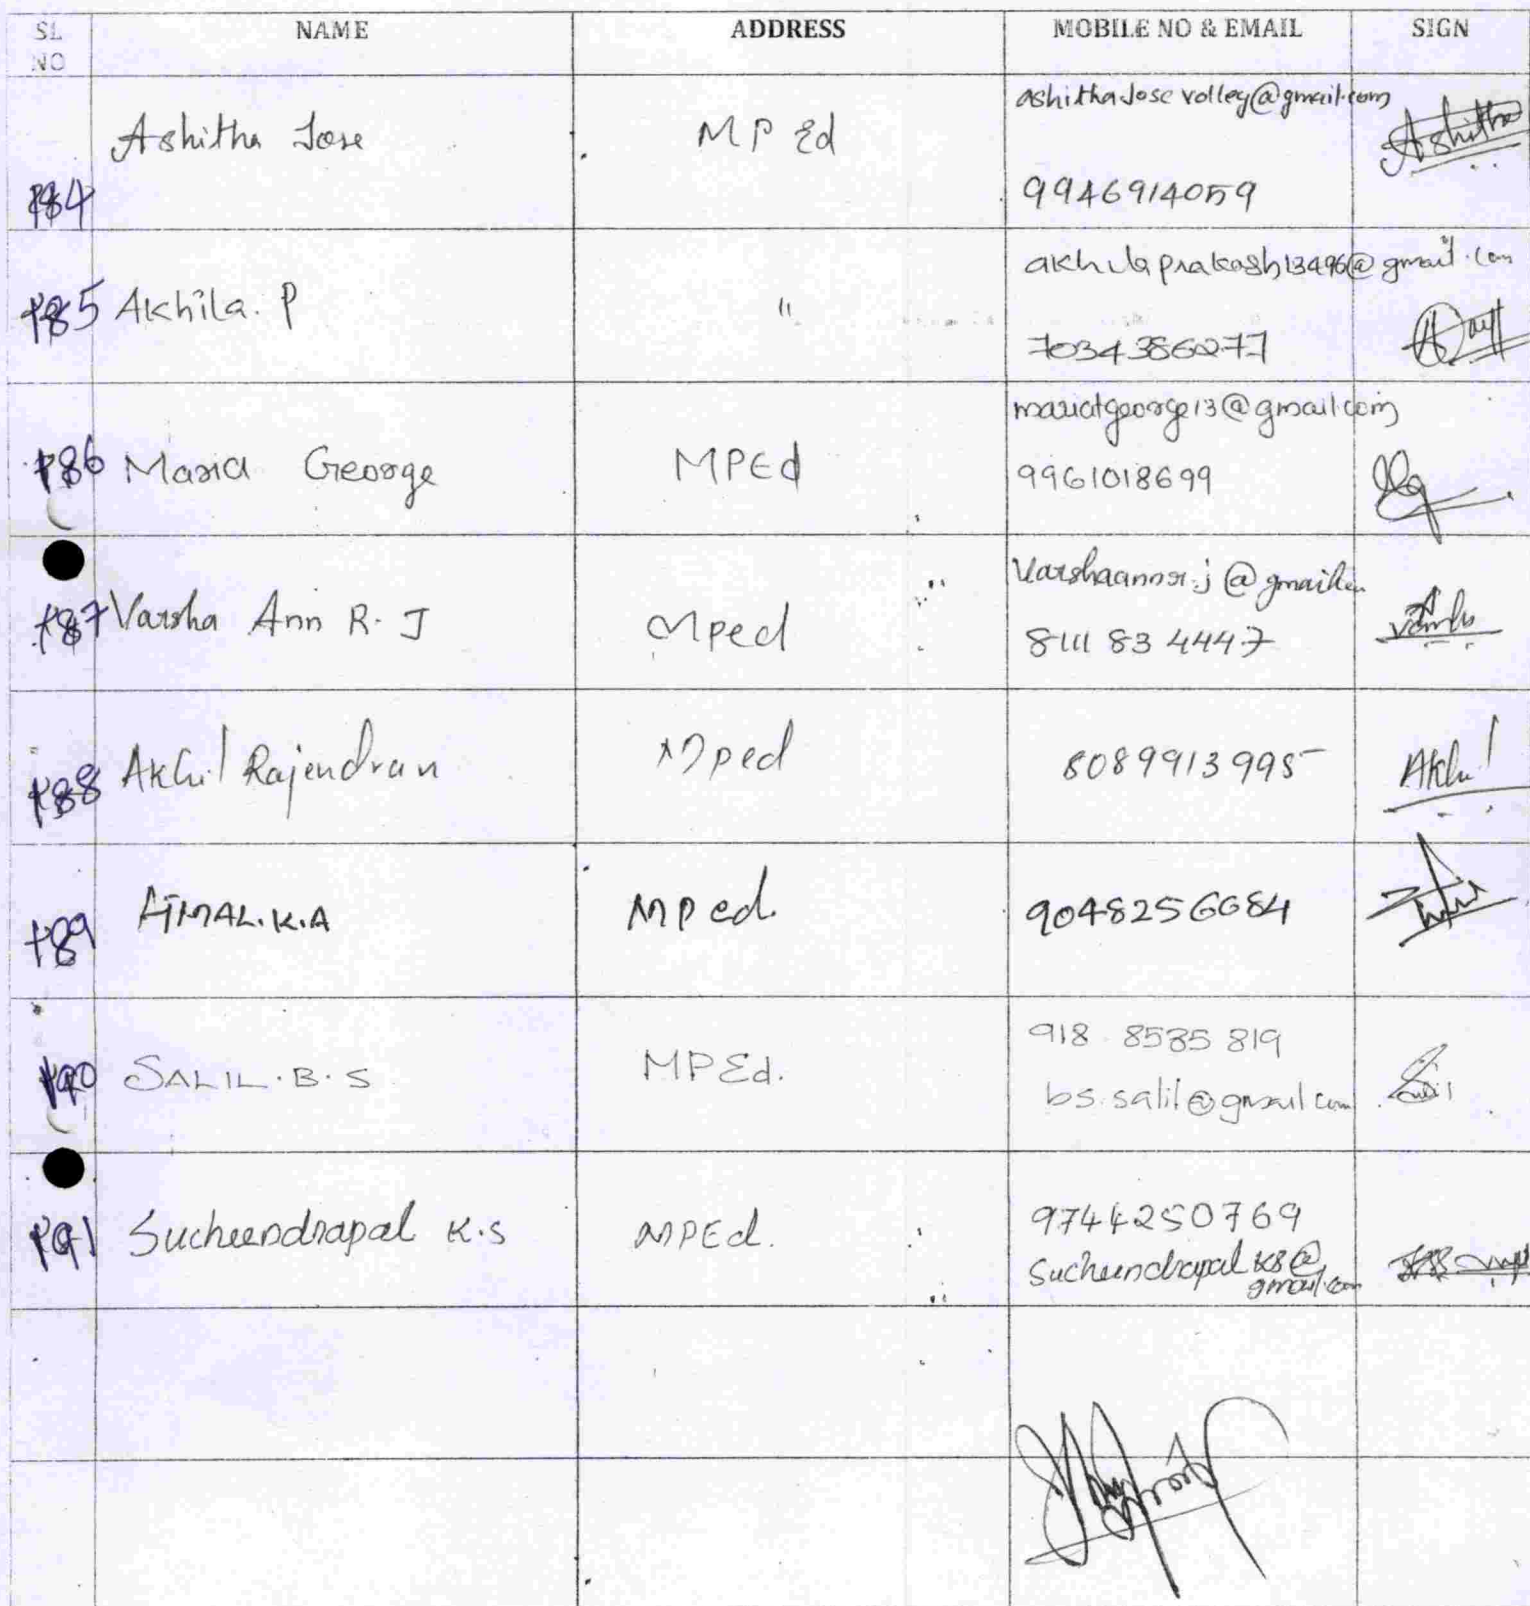 SL NO NAME ADDRESS MOBILE NO & EMAIL SIGN
184 Ashitha Jose MP Ed ashithaJose volley@gmail.com Ashitha
9946914059
185 Akhila. P " akhilaprakash13496@gmail.com
7034386277
186 Maria George MPEd mariatgeorge13@gmail.com
9961018699
187 Varsha Ann R. J Mped
8111 83 4447
188 Akhil Rajendran Mped 8089913995 Akhil
189 AJMAL.K.A MP ed. 9048256684
190 SALIL.B.S MPEd. 918 8585 819
bs.salil@gmail.com
191 Sucheendrapal K.S MPEd. 9744250769
SucheendrapalKS@
gmail.com